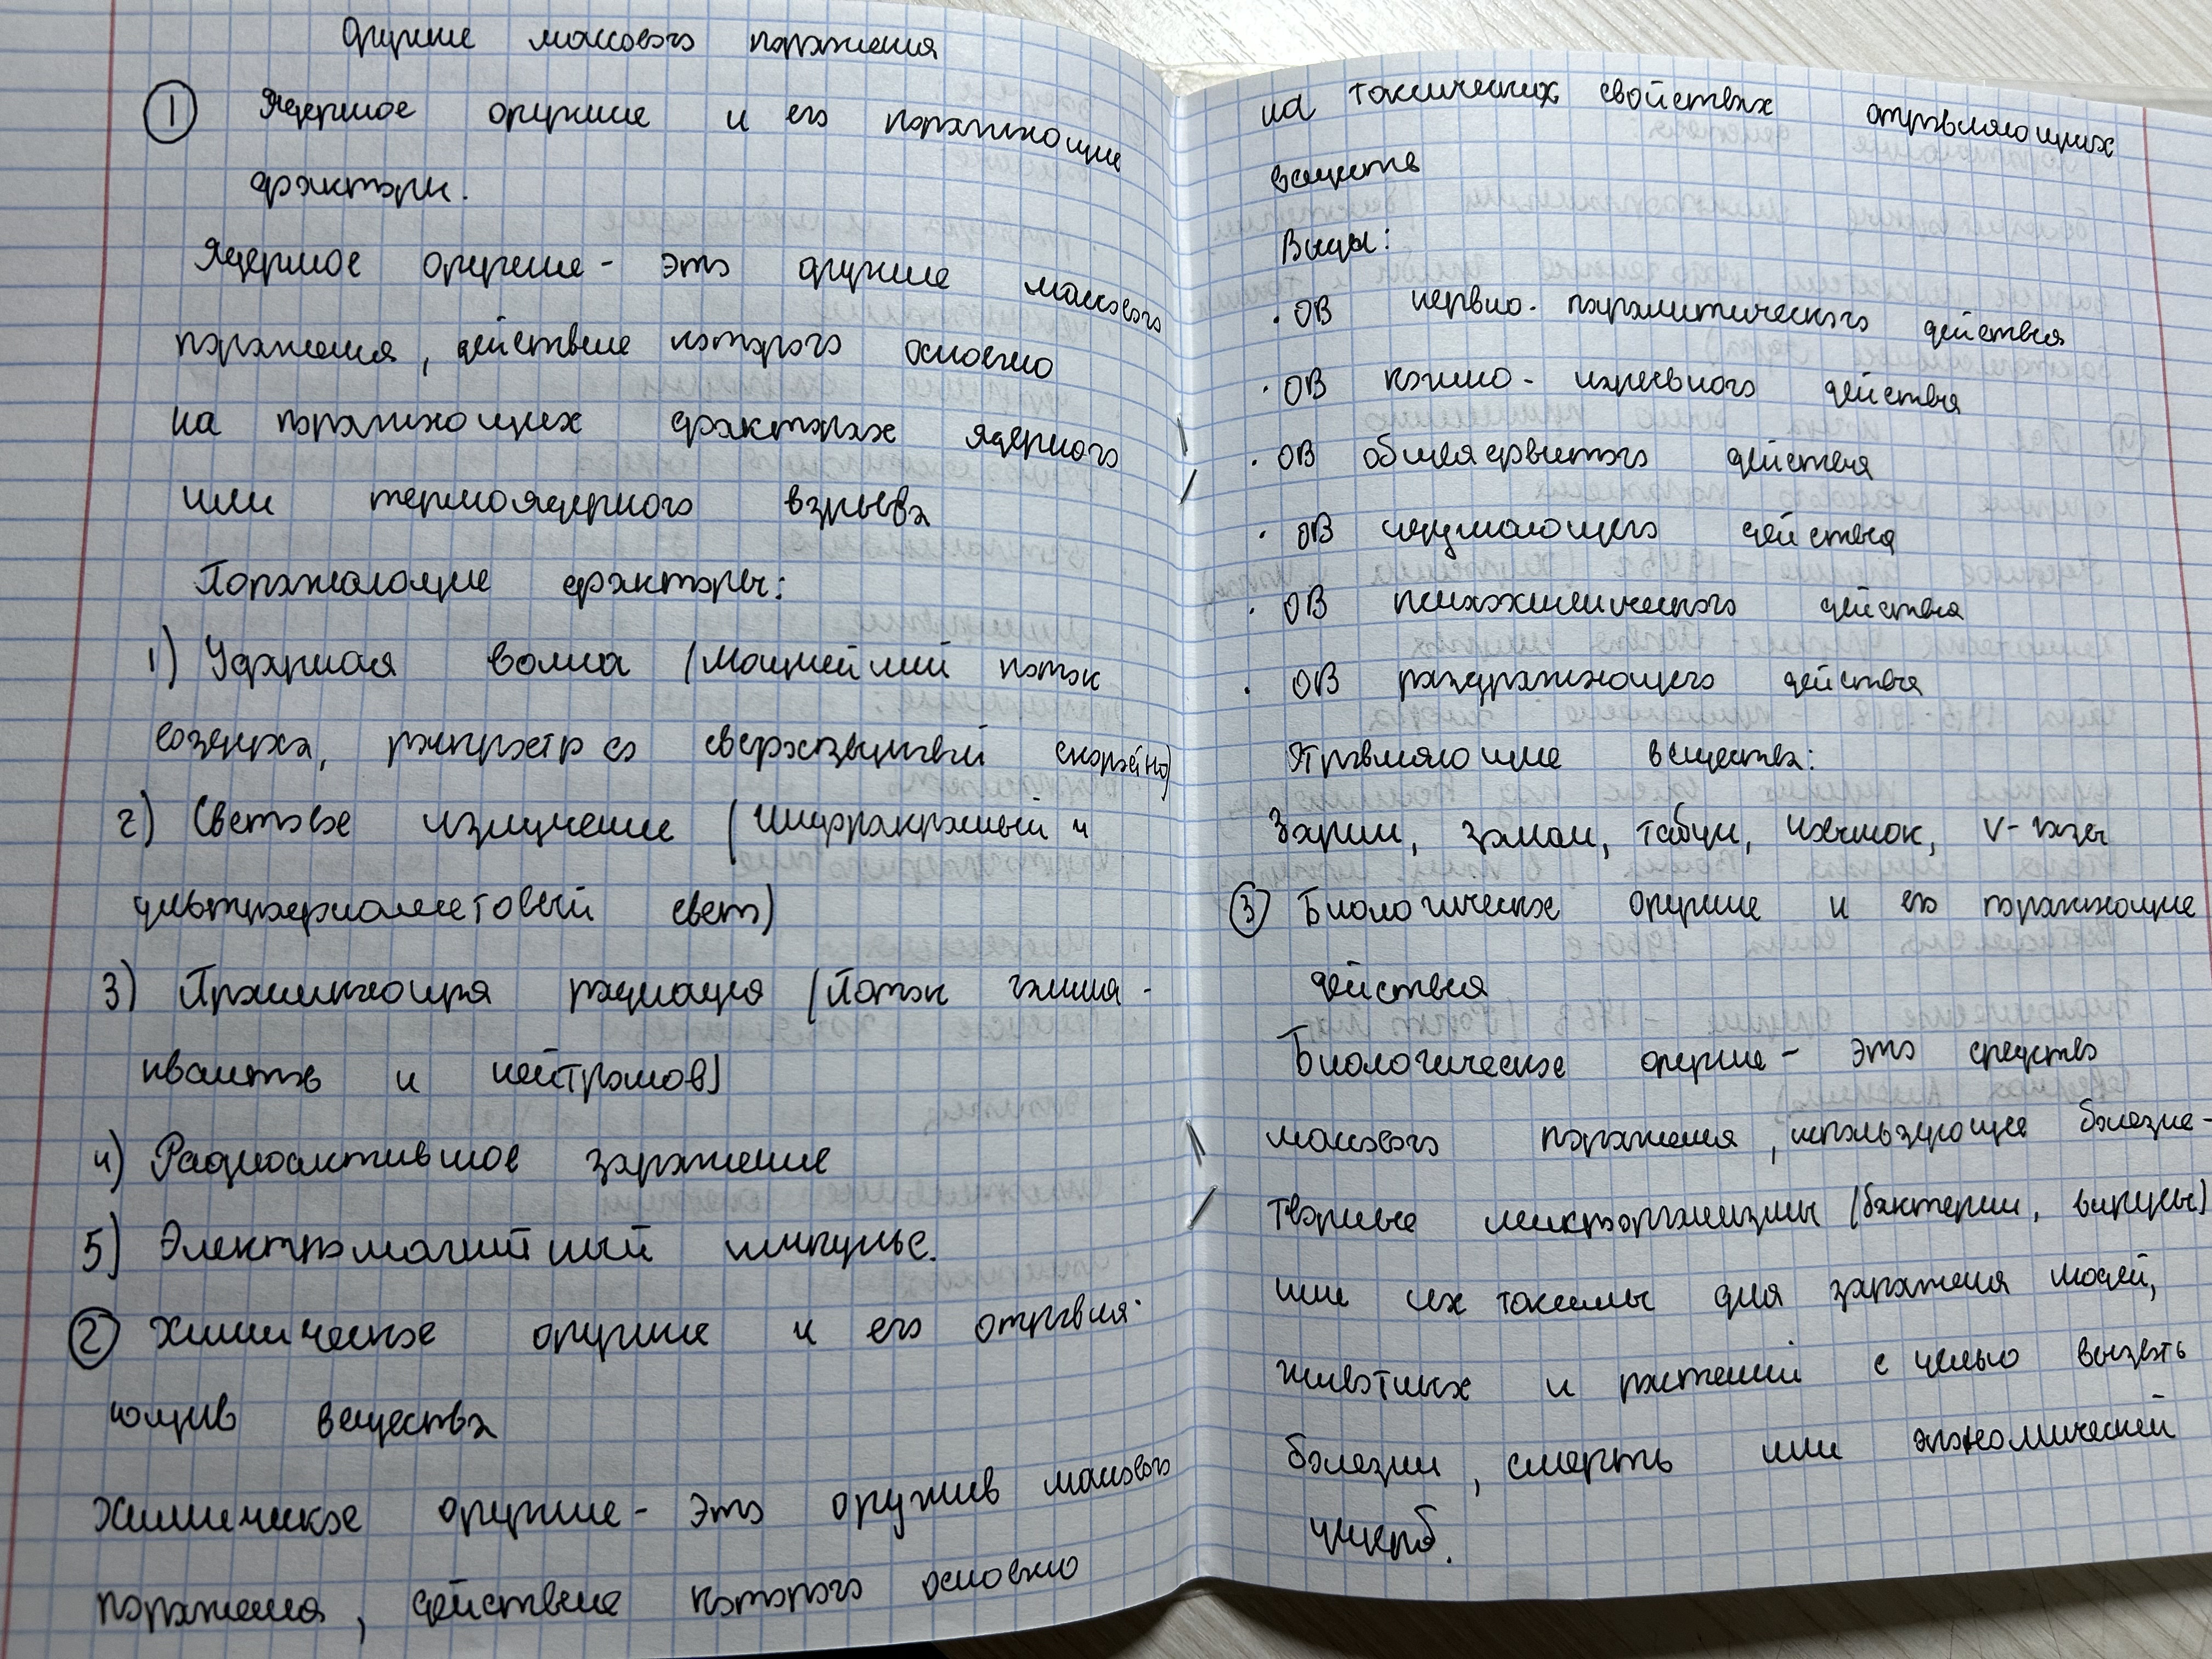 Оружие массового поражения
① Ядерное оружие и его поражающие
факторы.
Ядерное оружие - это оружие массового
поражения, действие которого основано
на поражающих факторах ядерного
или термоядерного взрыва
Поражающие факторы:
1) Ударная волна (мощнейший поток
воздуха, распростр со сверхзвуковой скоростью)
2) Световое излучение (инфракрасный и
ультрафиолетовый свет)
3) Проникающая радиация (поток гамма-
квантов и нейтронов)
4) Радиоактивное заражение
5) Электромагнитный импульс.
② Химическое оружие и его отравля-
ющие вещества
Химическое оружие - это оружие массового
поражения, действие которого основано
на токсических свойствах отравляющих
веществ
Виды:
· ОВ нервно-паралитического действия
· ОВ кожно-нарывного действия
· ОВ общеядовитого действия
· ОВ удушающего действия
· ОВ психохимического действия
· ОВ раздражающего действия
Отравляющие вещества:
Зарин, зоман, табун, V-газы
③ Биологическое оружие и его поражающие
действия
Биологическое оружие - это средство
массового поражения, использующее болезне-
творные микроорганизмы (бактерии, вирусы)
или их токсины для заражения людей,
животных и растений с целью вызвать
болезни, смерть или экономический
ущерб.